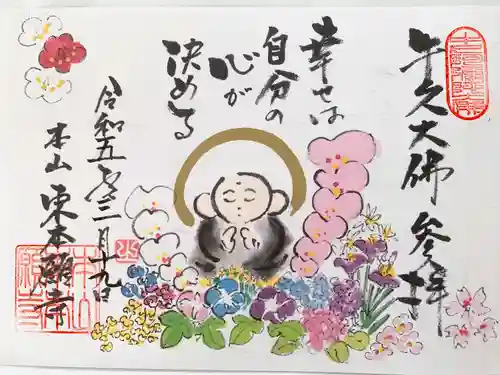 牛久大佛 参拝
幸せは
自分の
心が
決める
令和五年三月十九日
本山 東本願寺